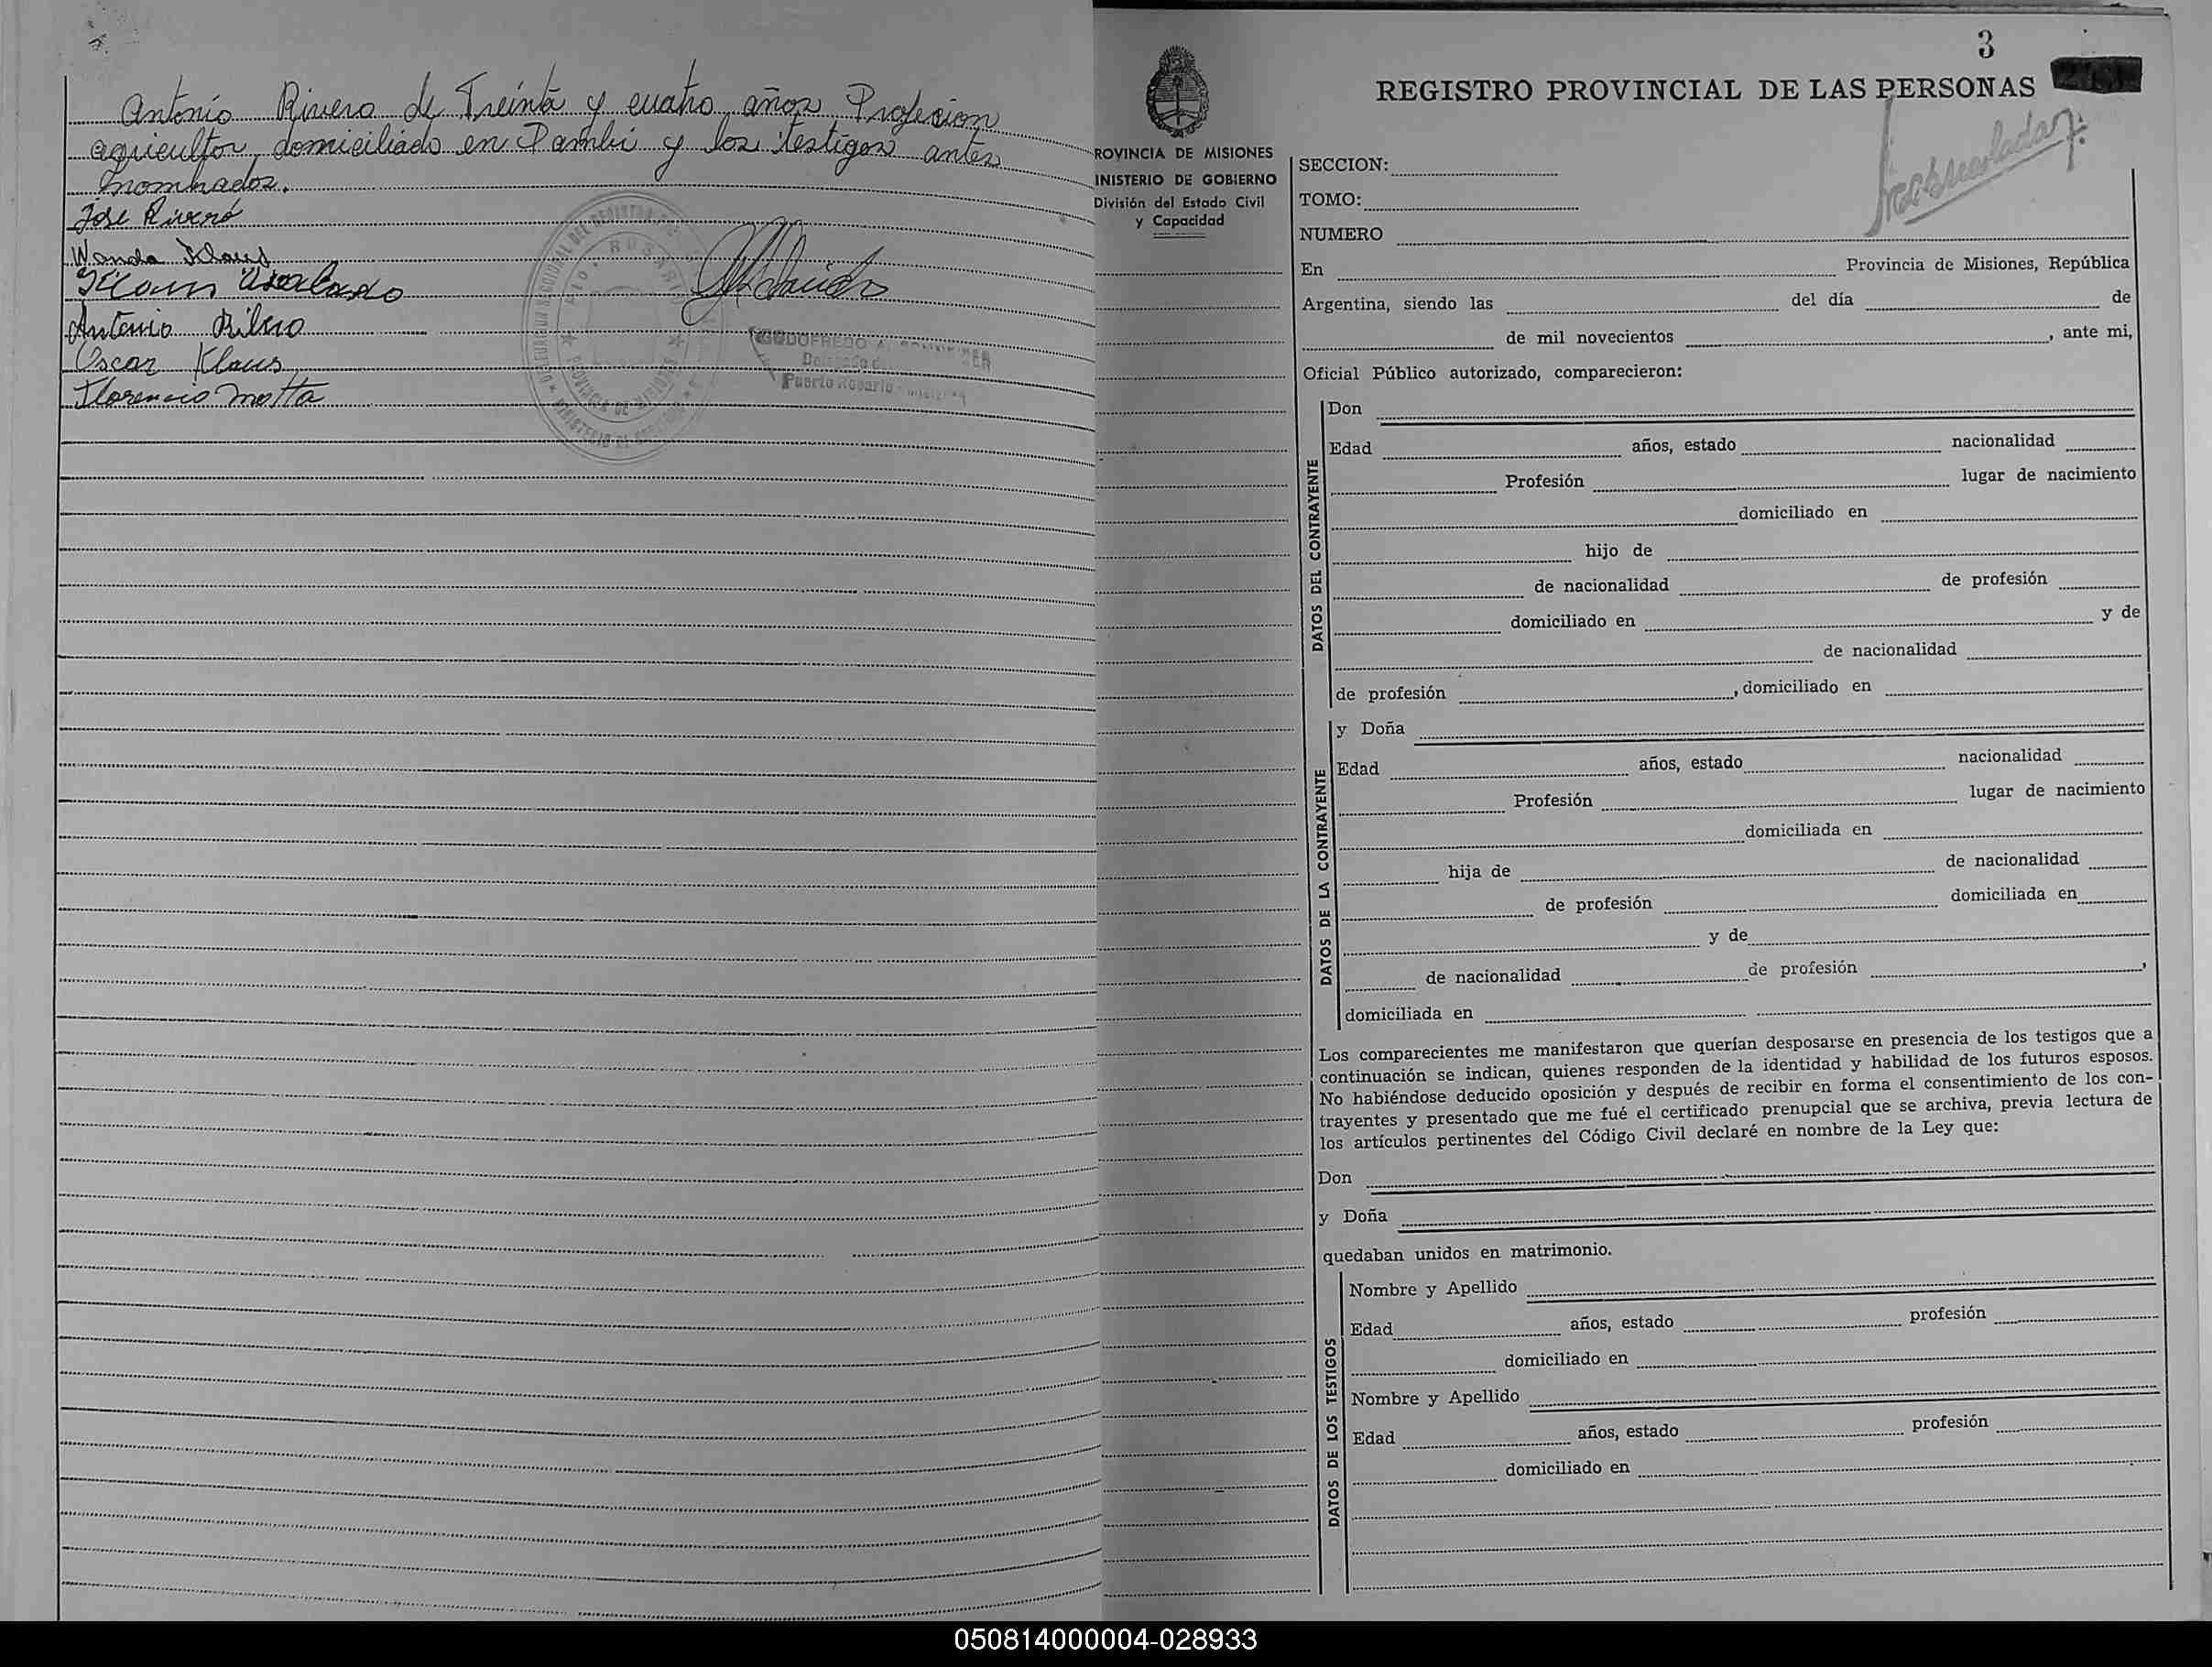 Antonio Rivero de Treinta y cuatro años Profesion
agricultor, domiciliado en Pambi y los testigos antes
nombrados.
Jose Rivero
Wanda Klaus
Antonio Ribero
Oscar Klaus
Florencio Motta
PROVINCIA DE MISIONES
Puerto Rosario
3
REGISTRO PROVINCIAL DE LAS PERSONAS
ROVINCIA DE MISIONES
INISTERIO DE GOBIERNO
División del Estado Civil
y Capacidad
SECCION:
TOMO:
NUMERO
En Provincia de Misiones, República
Argentina, siendo las del día de
de mil novecientos , ante mi,
Oficial Público autorizado, comparecieron:
DATOS DEL CONTRAYENTE
Don
Edad años, estado nacionalidad
Profesión lugar de nacimiento
domiciliado en
hijo de
de nacionalidad de profesión
domiciliado en y de
de nacionalidad
de profesión , domiciliado en
DATOS DE LA CONTRAYENTE
y Doña
Edad años, estado nacionalidad
Profesión lugar de nacimiento
domiciliada en
hija de de nacionalidad
de profesión domiciliada en
y de
de nacionalidad de profesión ,
domiciliada en
Los comparecientes me manifestaron que querían desposarse en presencia de los testigos que a
continuación se indican, quienes responden de la identidad y habilidad de los futuros esposos.
No habiéndose deducido oposición y después de recibir en forma el consentimiento de los con-
trayentes y presentado que me fué el certificado prenupcial que se archiva, previa lectura de
los artículos pertinentes del Código Civil declaré en nombre de la Ley que:
Don
y Doña
quedaban unidos en matrimonio.
DATOS DE LOS TESTIGOS
Nombre y Apellido
Edad años, estado profesión
domiciliado en
Nombre y Apellido
Edad años, estado profesión
domiciliado en
050814000004-028933